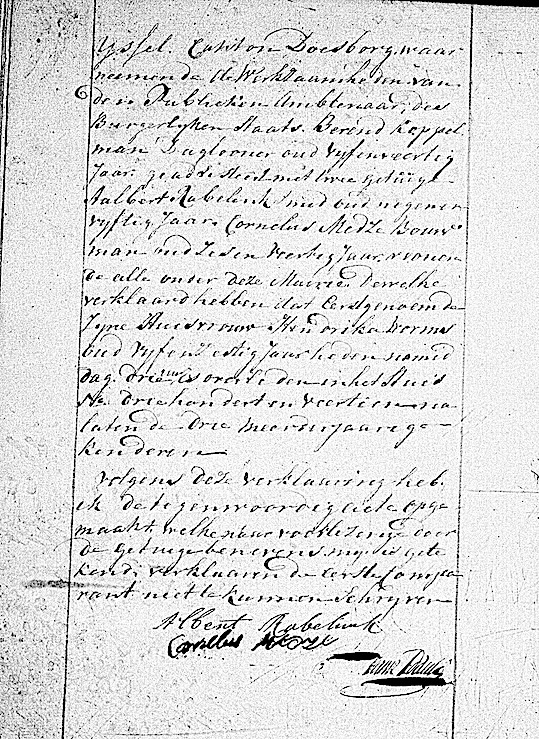 Yssel. Canton Doesborg, waar
neemende de Werkzaamheden van
den Publieken Ambtenaar, des
Burgerlyken Staats. Berend Koppel
man Daglooner oud vyfenveertig
Jaar. geadsisteerd met twee getuige
Aalbert Rabelink Smid oud negenen
vyftig Jaar. Cornelus Bouw
man oud Zesen Veertig Jaar. woonen
de alle onder deze Mairie. Dewelke
verklaard hebben dat Eerstgenoemde
Zyne Huisvrouw Hendrika Worms
oud vyfenZestig Jaar heden namid
dag. drie uur, is overleden in het Huis
No. driehondert en veertien na
latende drie meerderjaarige
kenderen
Volgens deze verklaaring heb
ik de tegenwoordig acte opge
maakt, welke naar voorlezing door
de getuige benevens my is gete
kend, verklaarende eerste Compa
rant niet te kunnen Schryven
Albert Rabelink